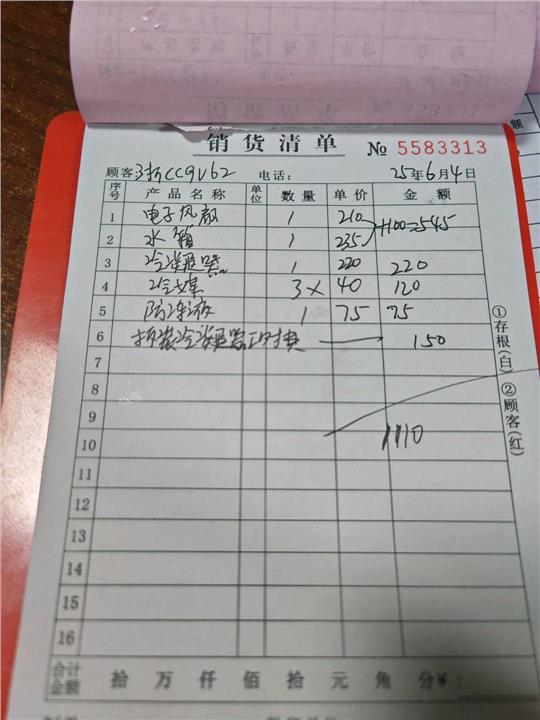 销货清单 № 5583313
顾客 CC9V62 电话: 25年6月4日
序号 产品名称 单位 数量 单价 金额
1 电子风扇 1 210
2 水箱 1 235 +100=545
3 冷凝器 1 220 220
4 冷媒 3× 40 120
5 防冻液 1 75 75
6 拆装冷凝器工时费 150
7
8
9
10 1110
11
12
13
14
15
16
合计金额 拾 万 仟 佰 拾 元 角 分¥:
①存根(白) ②顾客(红)